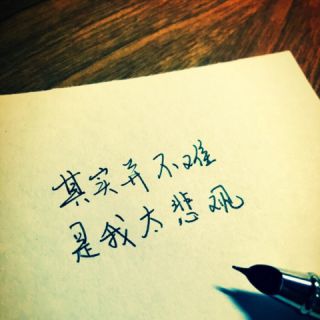 其实并不难
是我太悲观